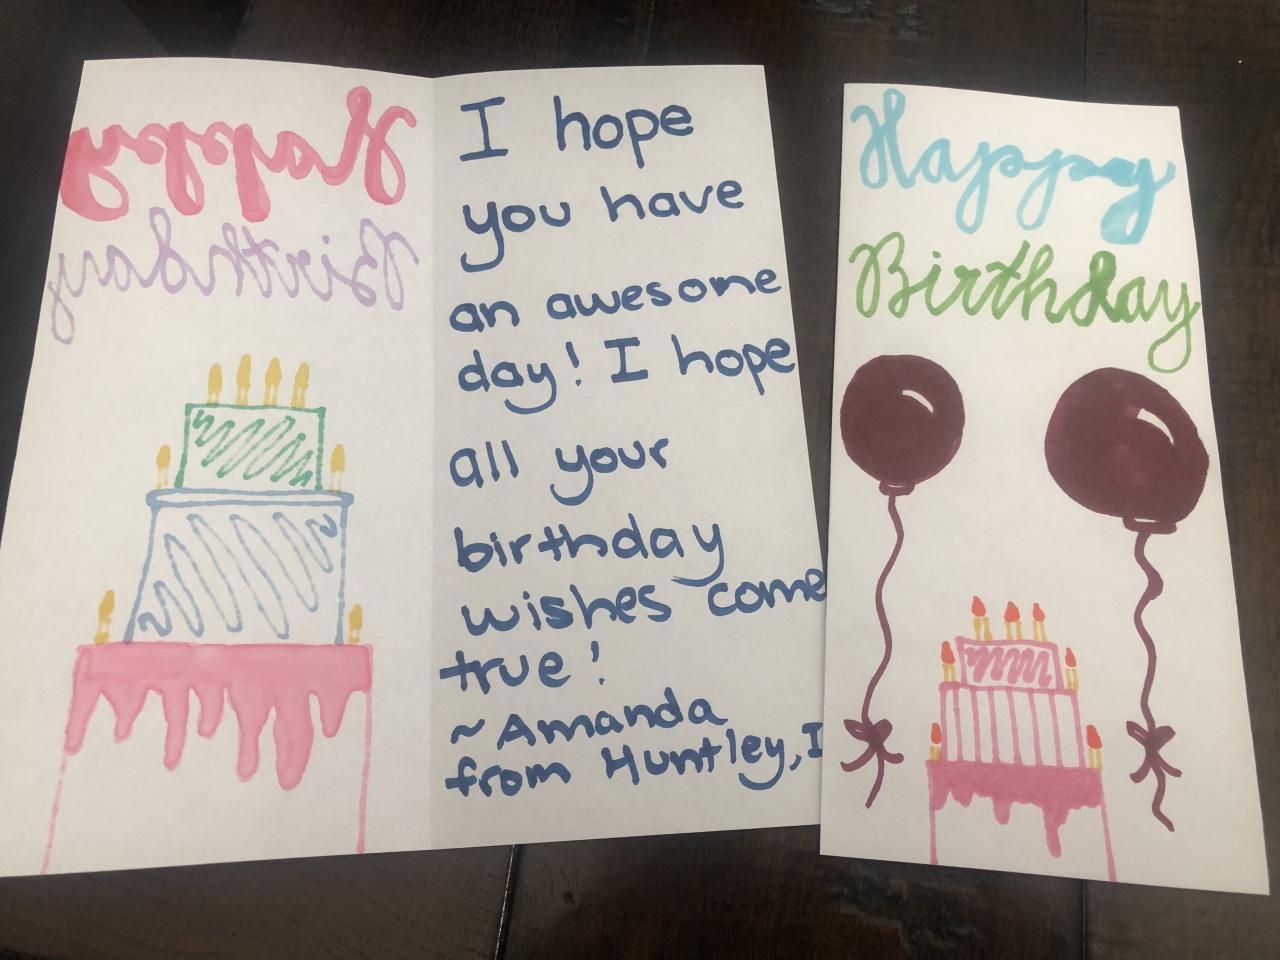 Happy
Birthday
I hope
you have
an awesome
day! I hope
all your
birthday
wishes come
true!
~Amanda
from Huntley, I
Happy
Birthday